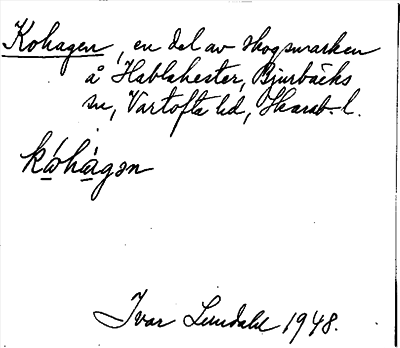 Kohagen, en del av skogsmarken
å Hablahester, Bjurbäcks
sn, Vartofta hd, Skarab. l.
kóhàgən
Ivar Lundahl 1948.